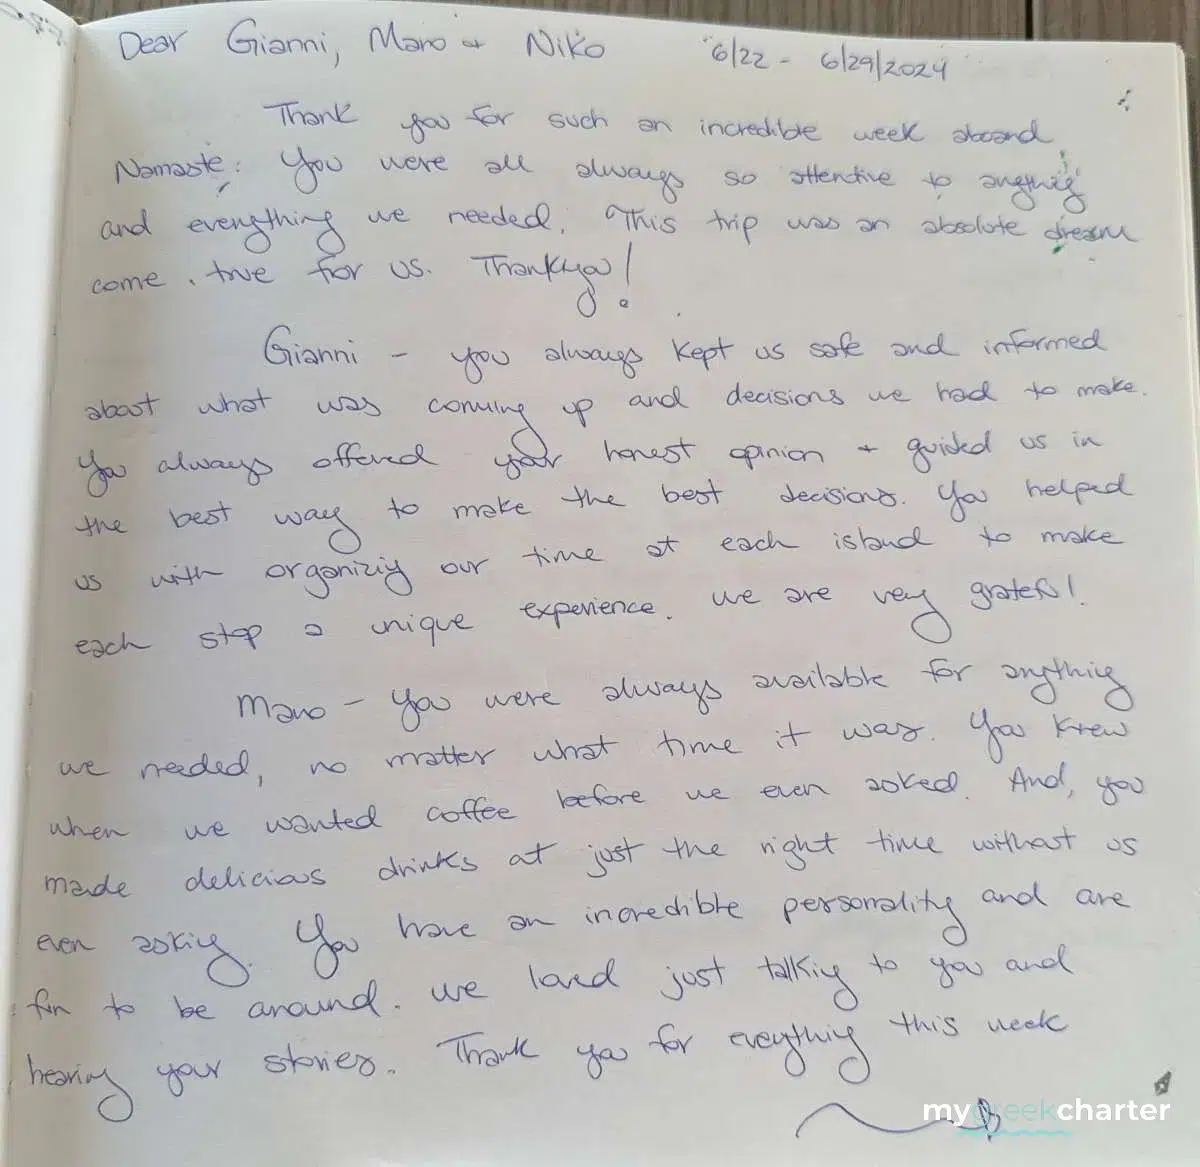 Dear Gianni, Mano + Niko 6/22 - 6/29/2024
Thank you for such an incredible week aboard
Namaste. You were all always so attentive to anything
and everything we needed. This trip was an absolute dream
come true for us. Thankyou!
Gianni - you always kept us safe and informed
about what was coming up and decisions we had to make.
You always offered your honest opinion + guided us in
the best way to make the best decisions. You helped
us with organizing our time at each island to make
each stop a unique experience. We are very grateful!
Mano - You were always available for anything
we needed, no matter what time it was. You knew
when we wanted coffee before we even asked. And, you
made delicious drinks at just the right time without us
even asking. You have an incredible personality and are
fun to be around. We loved just talking to you and
hearing your stories. Thank you for everything this week
mygreekcharter